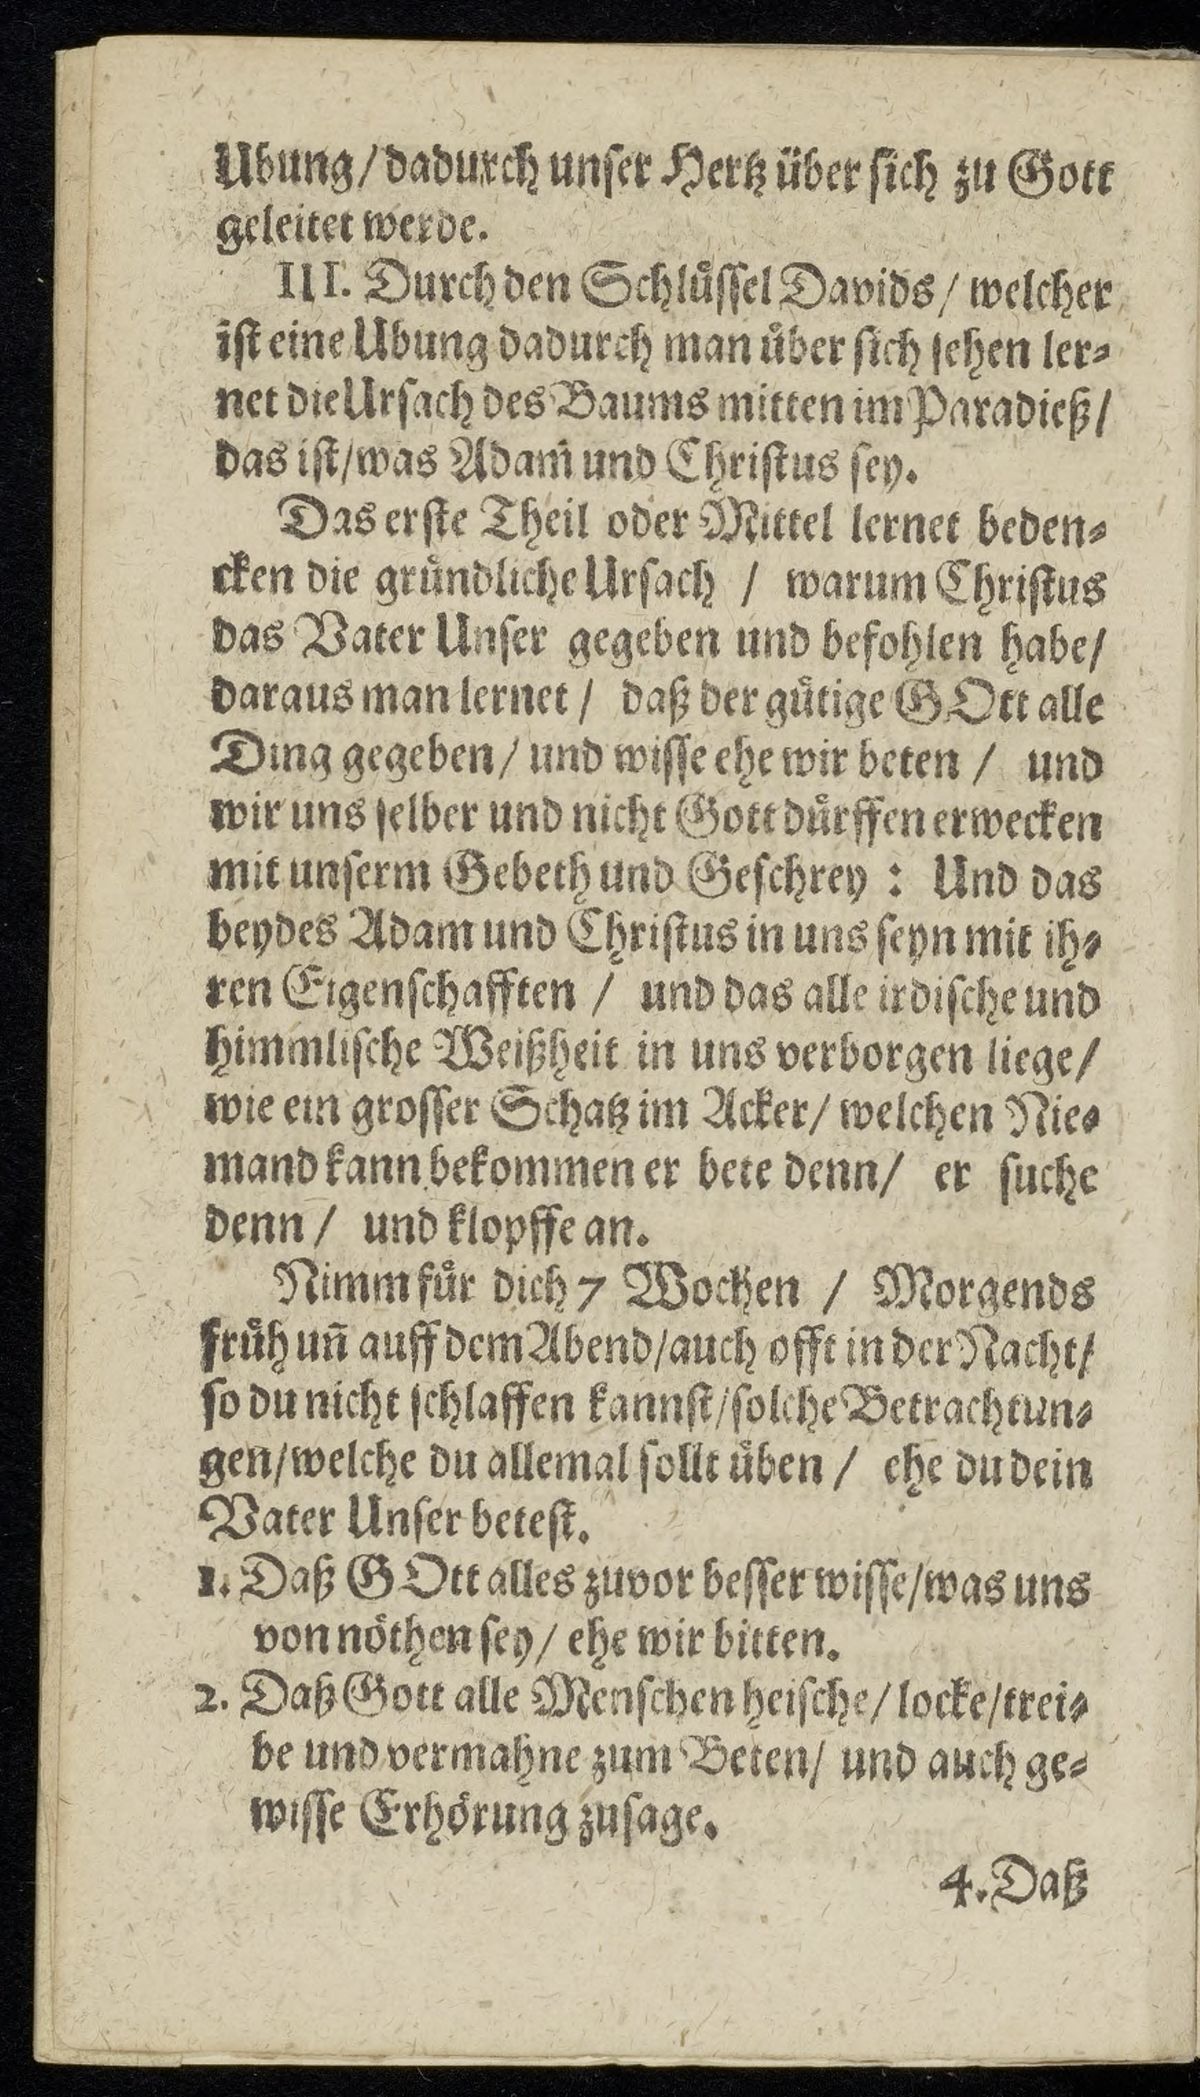 Ubung/ dadurch unser Hertz über sich zu Gott
geleitet werde.
III. Durch den Schlüssel Davids/ welcher
ist eine Ubung dadurch man über sich sehen ler-
net die Ursach des Baums mitten im Paradieß/
das ist/ was Adam und Christus sey.
Das erste Theil oder Mittel lernet beden-
cken die gründliche Ursach / warum Christus
das Vater Unser gegeben und befohlen habe/
daraus man lernet / daß der gütige GOtt alle
Ding gegeben/ und wisse ehe wir beten / und
wir uns selber und nicht Gott dürffen erwecken
mit unserm Gebeth und Geschrey : Und das
beydes Adam und Christus in uns seyn mit ih-
ren Eigenschafften / und das alle irdische und
himmlische Weißheit in uns verborgen liege/
wie ein grosser Schatz im Acker/ welchen Nie-
mand kann bekommen er bete denn/ er suche
denn / und klopffe an.
Nimm für dich 7 Wochen / Morgends
früh uñ auff dem Abend/ auch offt in der Nacht/
so du nicht schlaffen kannst/ solche Betrachtun-
gen/ welche du allemal sollt üben / ehe du dein
Vater Unser betest.
1. Daß GOtt alles zuvor besser wisse/ was uns
von nöthen sey/ ehe wir bitten.
2. Daß Gott alle Menschen heische/ locke/ trei-
be und vermahne zum Beten/ und auch ge-
wisse Erhörung zusage.
4. Daß